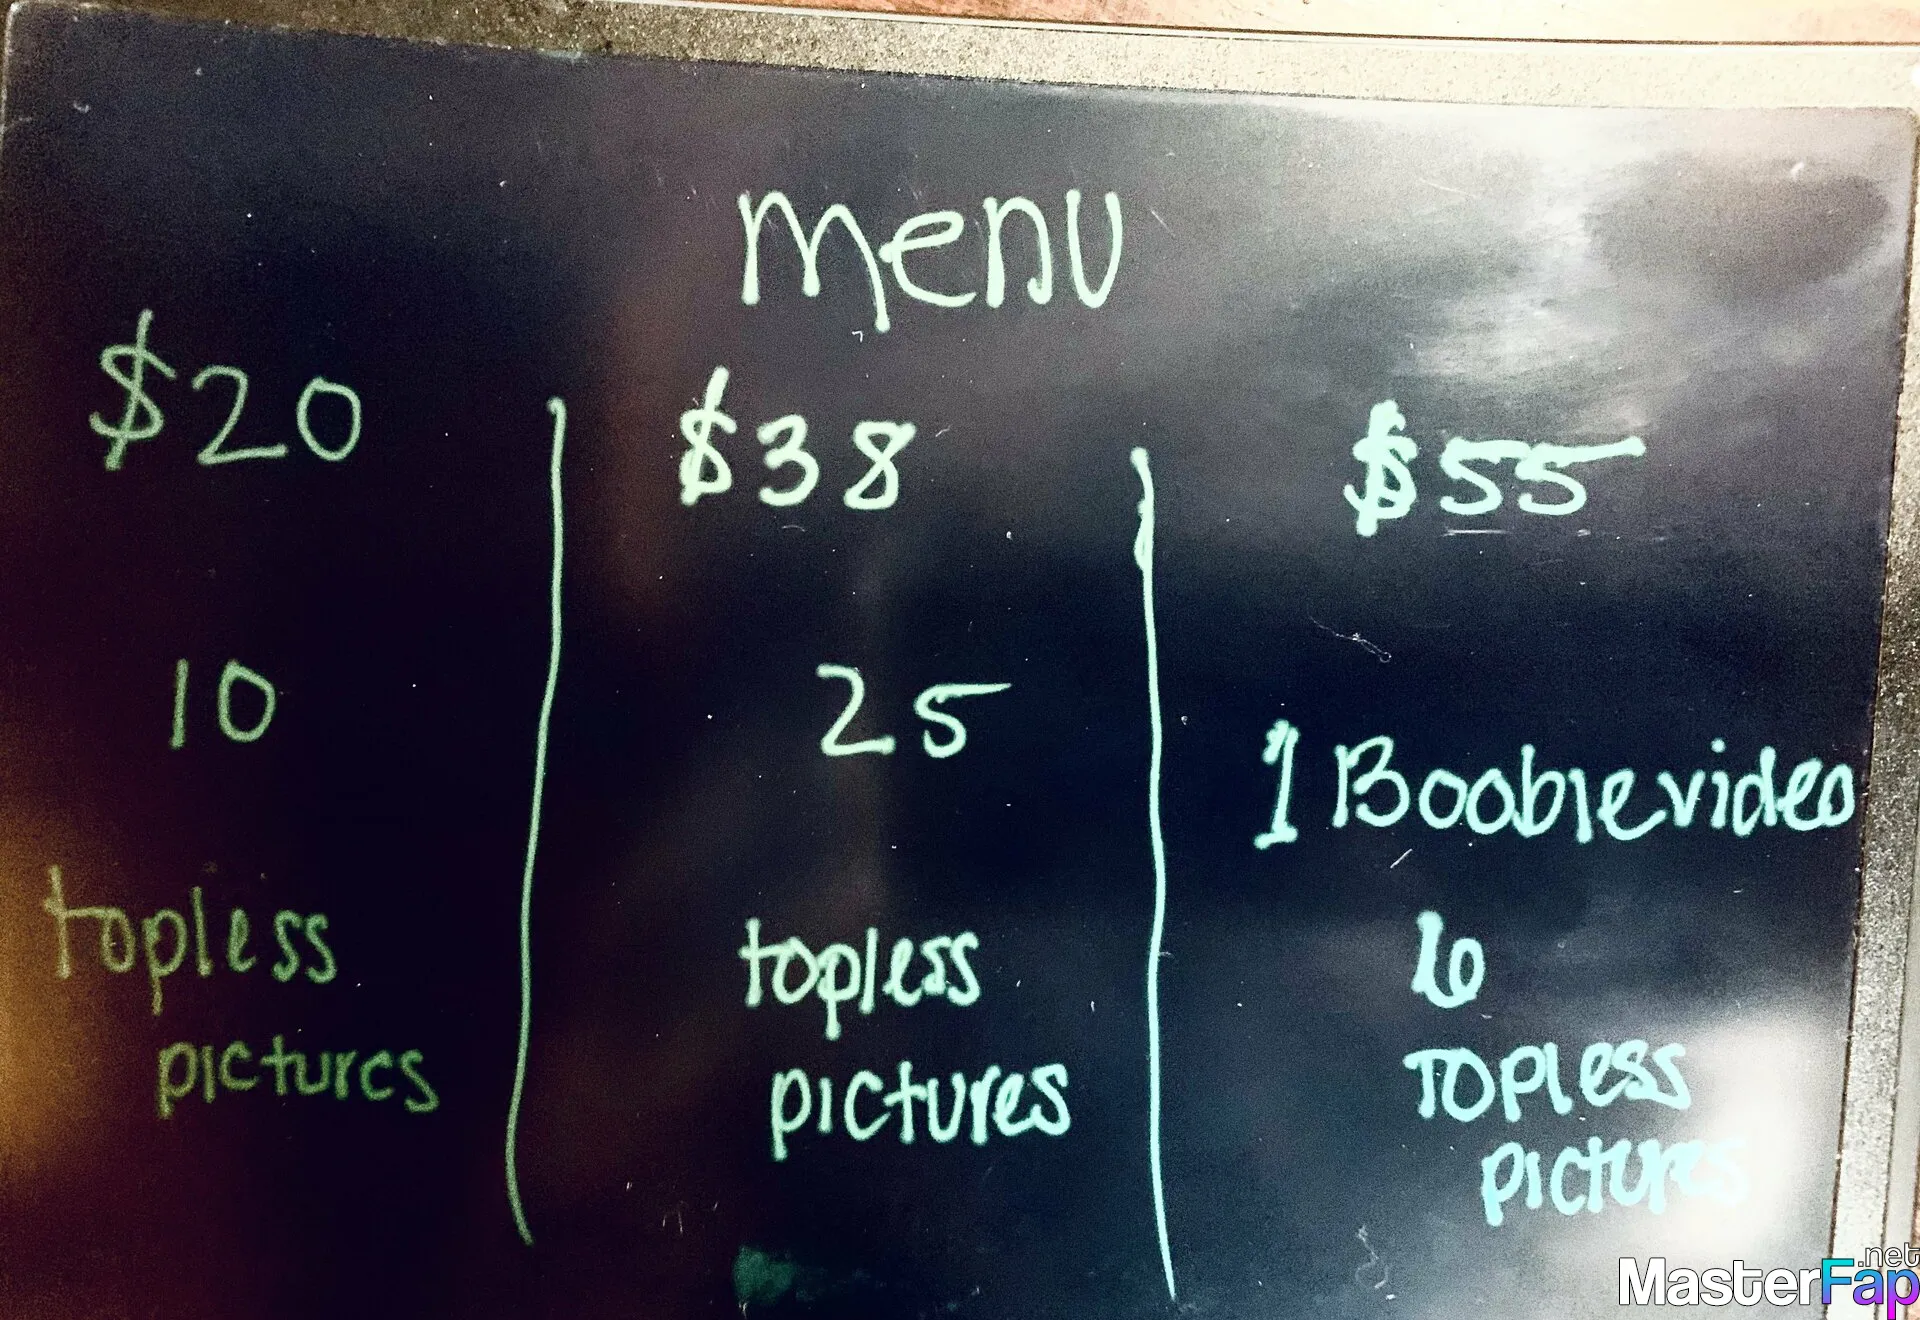 menu
$20
10
topless
pictures
$38
25
topless
pictures
$55
1 Boobie video
6
Topless
pictures
MasterFap.net